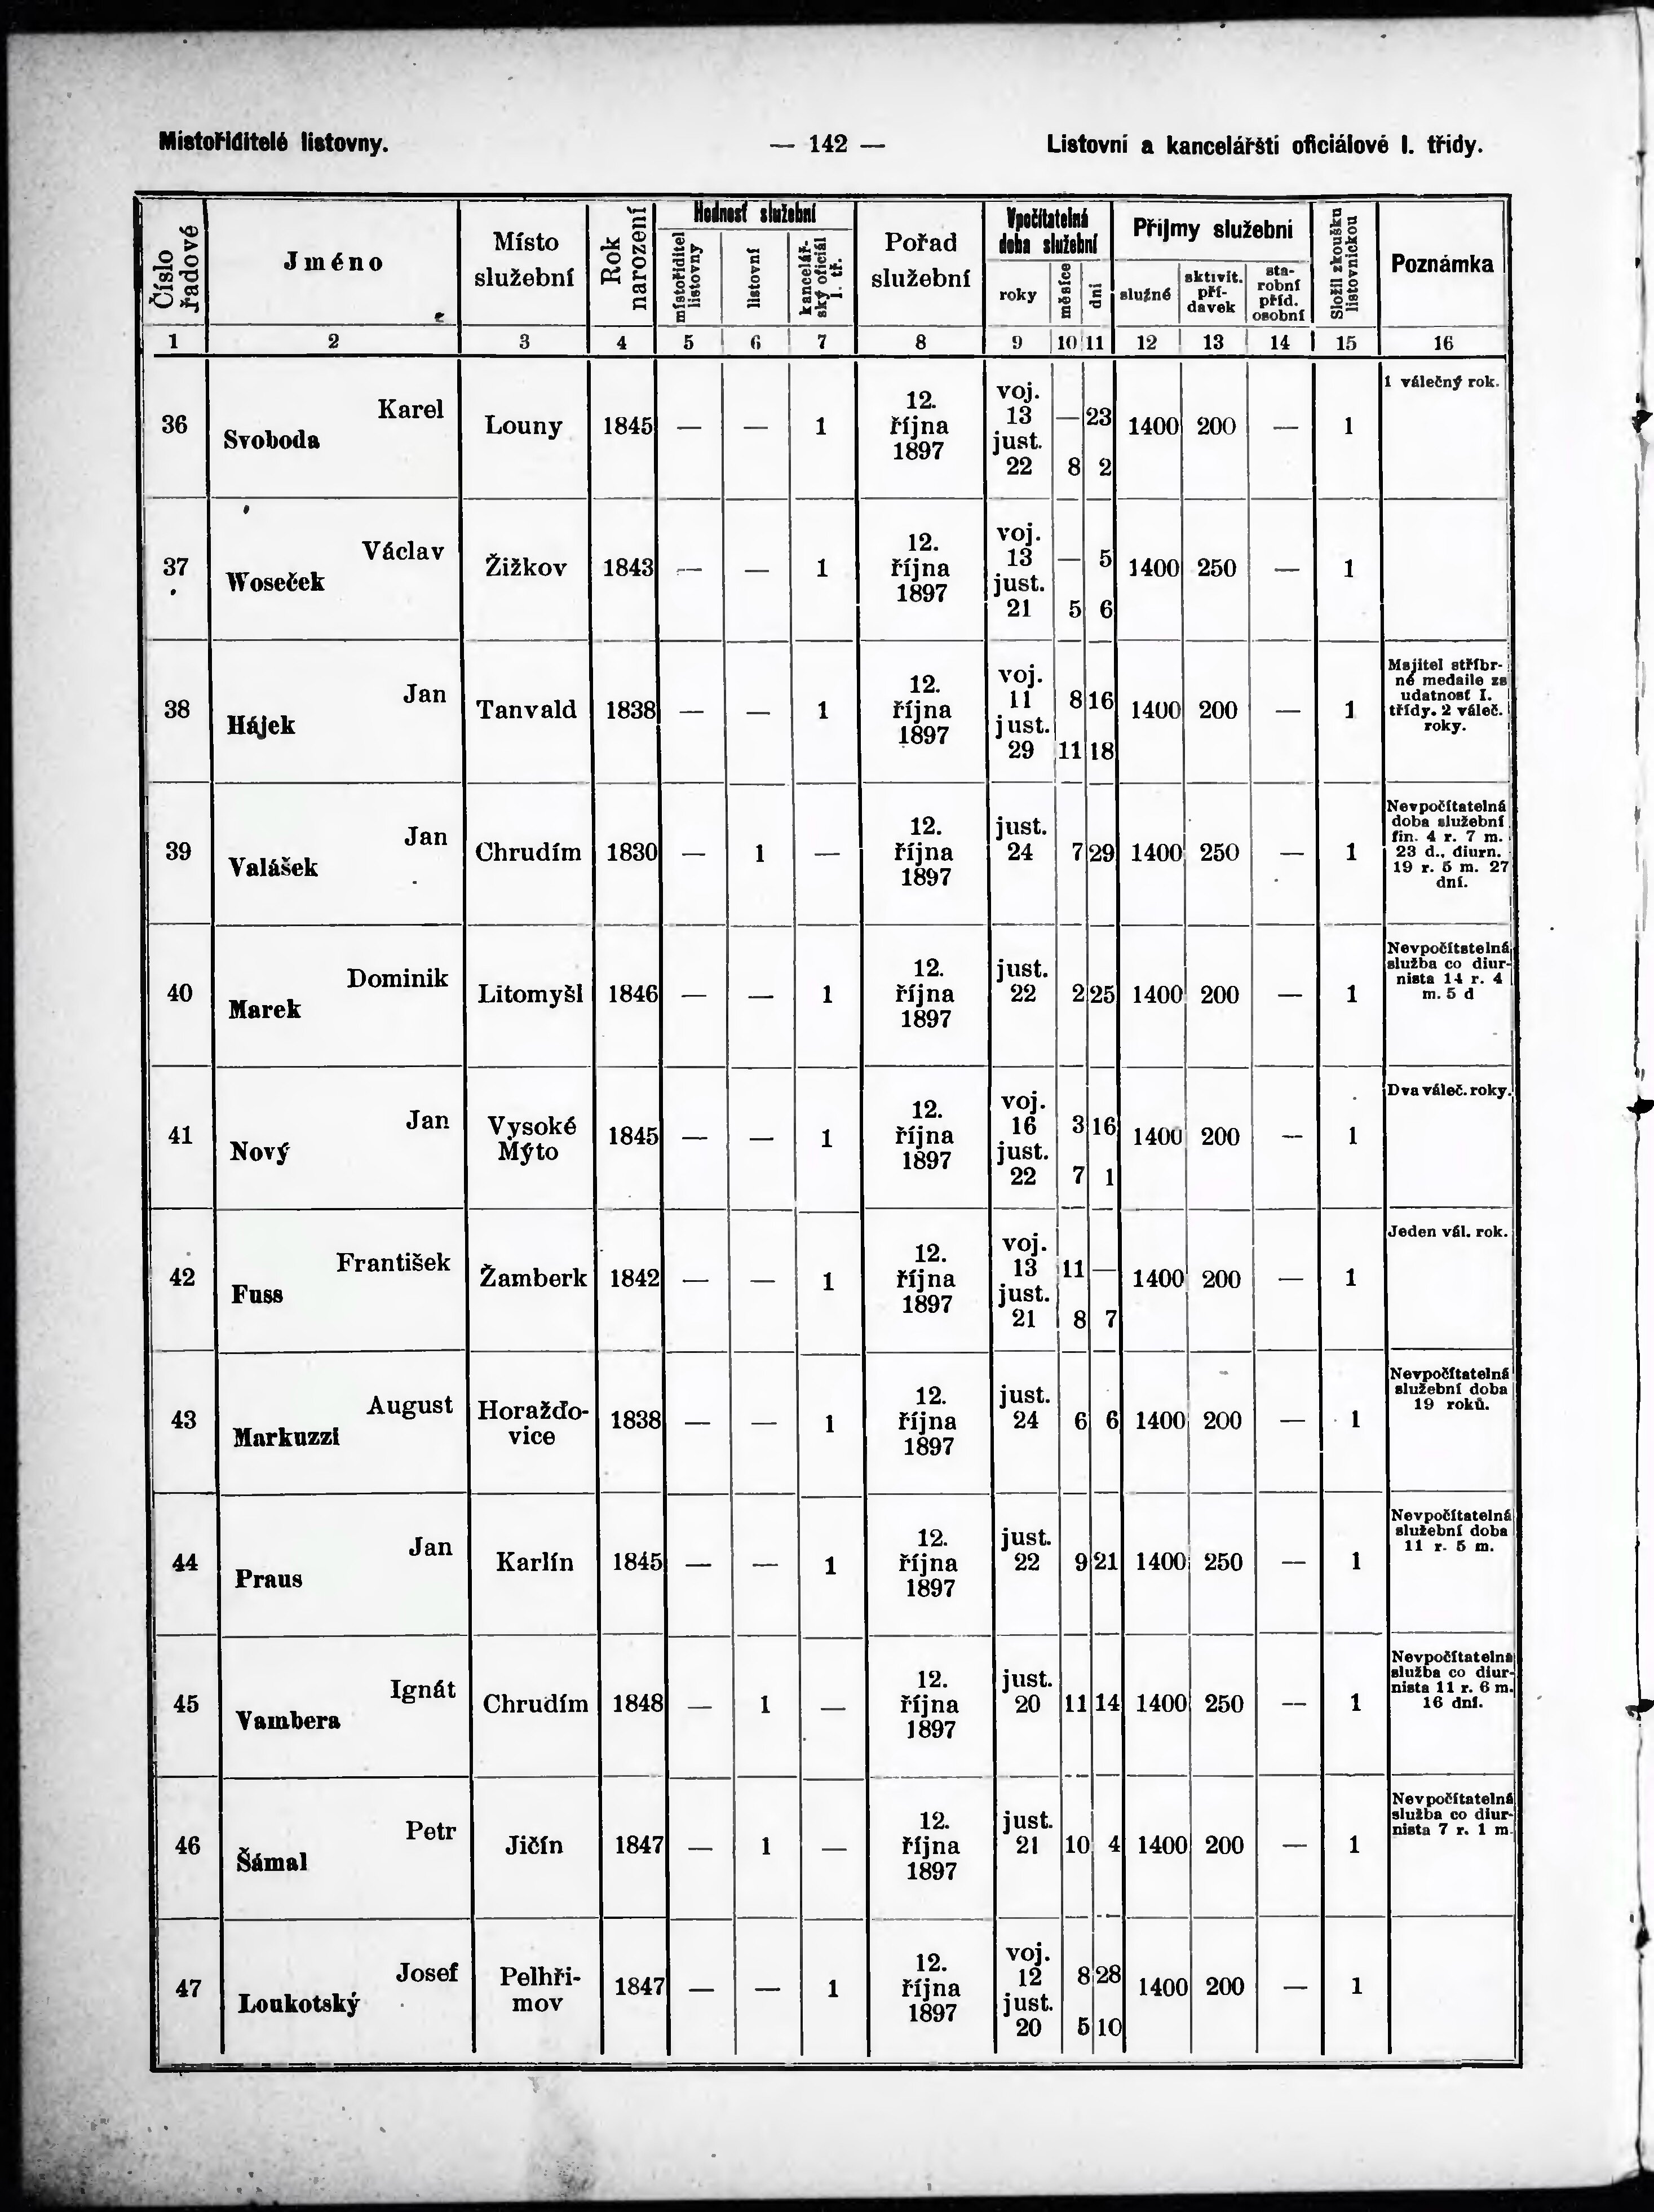 Mistořiditelé listovny. — 142 — Listovní a kancelářští oficiálové I. třídy.
Číslo řadové
Jméno
Místo
služební
Rok
narození
Hodnosť služební
místořiditel
listovny
listovní
kancelář-
ský oficiál
I. tř.
Pořad
služební
Vpočítatelná
doba služební
roky
měsíce
dni
Příjmy služební
služné
aktivit.
pří-
davek
sta-
robní
příd.
osobní
Složil zkoušku
listovnickou
Poznámka
1 2 3 4 5 6 7 8 9 10 11 12 13 14 15 16
36
Karel
Svoboda
Louny
1845 — — 1
12.
října
1897
voj.
13 — 23
just.
22 8 2
1400 200 — 1
1 válečný rok.
37
Václav
Woseček
Žižkov
1843 — — 1
12.
října
1897
voj.
13 — 5
just.
21 5 6
1400 250 — 1
38
Jan
Hájek
Tanvald
1838 — — 1
12.
října
1897
voj.
11 8 16
just.
29 11 18
1400 200 — 1
Majitel stříbr-
né medaile za
udatnosť I.
třídy. 2 váleč.
roky.
39
Jan
Valášek
Chrudím
1830 — 1 —
12.
října
1897
just.
24 7 29
1400 250 — 1
Nevpočítatelná
doba služební
fin. 4 r. 7 m.
23 d., diurn.
19 r. 5 m. 27
dní.
40
Dominik
Marek
Litomyšl
1846 — — 1
12.
října
1897
just.
22 2 25
1400 200 — 1
Nevpočítatelná
služba co diur-
nista 14 r. 4
m. 5 d
41
Jan
Nový
Vysoké
Mýto
1845 — — 1
12.
října
1897
voj.
16 3 16
just.
22 7 1
1400 200 — 1
Dva váleč. roky.
42
František
Fuss
Žamberk
1842 — — 1
12.
října
1897
voj.
13 11 —
just.
21 8 7
1400 200 — 1
Jeden vál. rok.
43
August
Markuzzi
Horažďo-
vice
1838 — — 1
12.
října
1897
just.
24 6 6
1400 200 — 1
Nevpočítatelná
služební doba
19 roků.
44
Jan
Praus
Karlín
1845 — — 1
12.
října
1897
just.
22 9 21
1400 250 — 1
Nevpočítatelná
služební doba
11 r. 5 m.
45
Ignát
Vambera
Chrudím
1848 — 1 —
12.
října
1897
just.
20 11 14
1400 250 — 1
Nevpočítatelná
služba co diur-
nista 11 r. 6 m.
16 dní.
46
Petr
Šámal
Jičín
1847 — 1 —
12.
října
1897
just.
21 10 4
1400 200 — 1
Nevpočítatelná
služba co diur-
nista 7 r. 1 m.
47
Josef
Loukotský
Pelhři-
mov
1847 — — 1
12.
října
1897
voj.
12 8 28
just.
20 5 10
1400 200 — 1